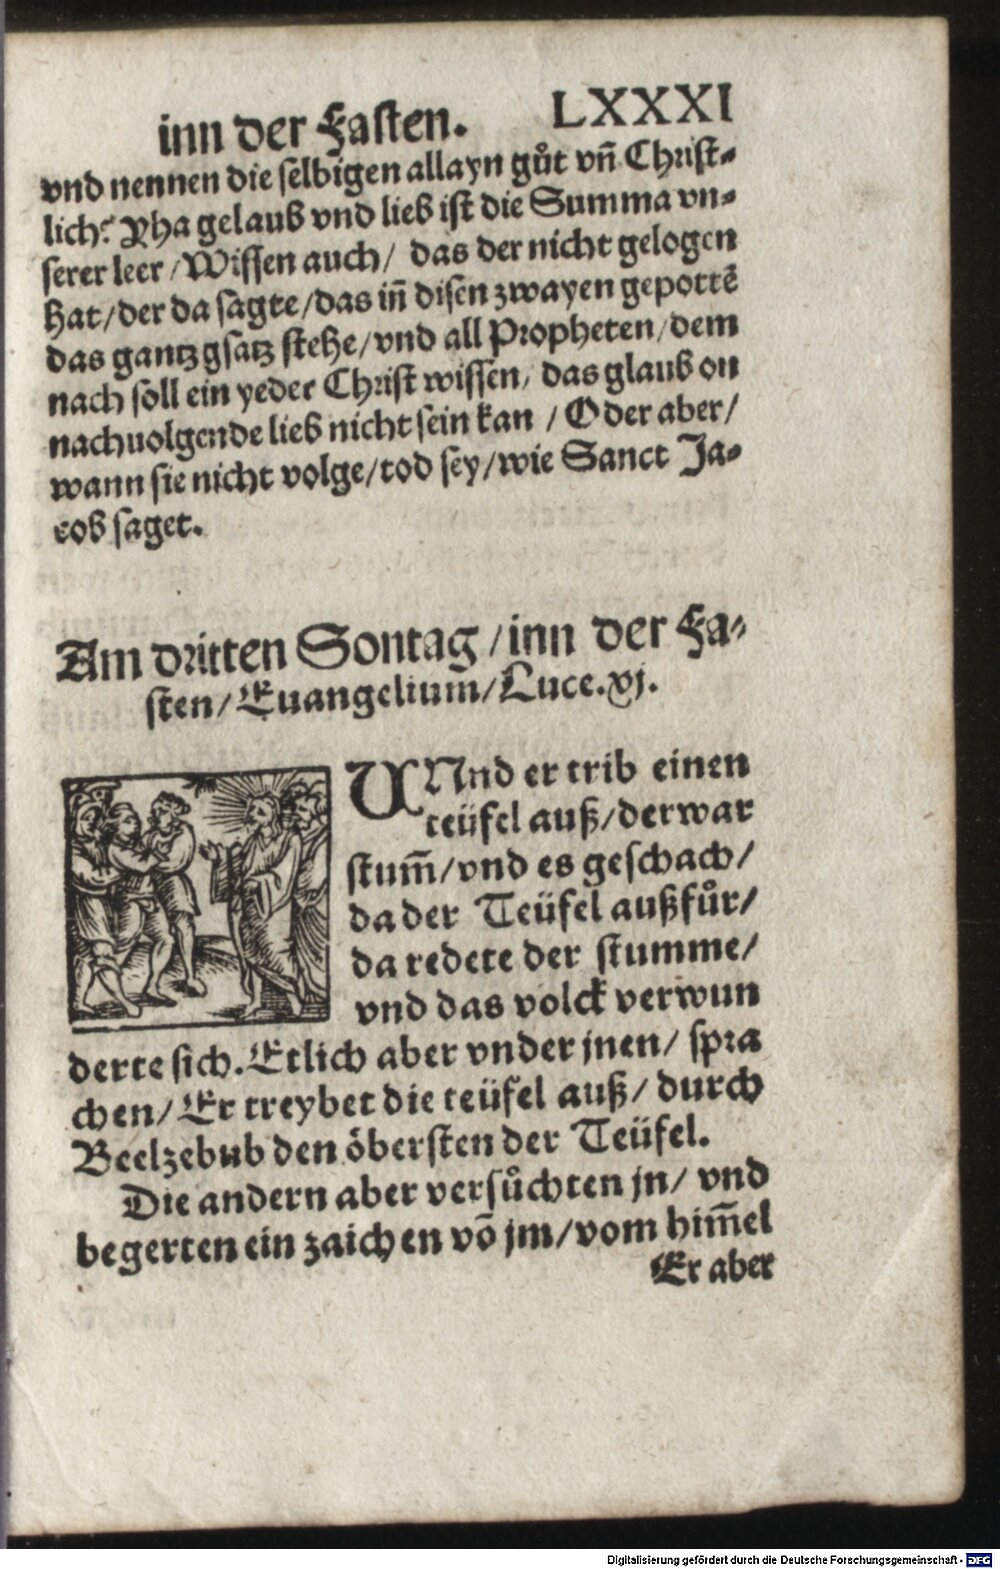 inn der Fasten. LXXXI
vnd nennen die selbigen allayn gůt vñ Christ-
lich? Rha gelaub vnd lieb ist die Summa vn-
serer leer / Wissen auch / das der nicht gelogen
hat / der da sagte / das iñ disen zwayen gepottē
das gantz gsatz stehe / vnd all Propheten / dem
nach soll ein yeder Christ wissen / das glaub on
nachuolgende lieb nicht sein kan / Oder aber /
wann sie nicht volge / tod sey / wie Sanct Ja-
cob saget.
Am dritten Sontag / inn der Fa-
sten / Euangelium / Luce. xj.
VNnd er trib einen
teüfel auß / der war
stum̄ / vnd es geschach /
da der Teüfel außfůr /
da redete der stumme /
vnd das volck verwun
derte sich. Etlich aber vnder jnen / spra
chen / Er treybet die teüfel auß / durch
Beelzebub den öbersten der Teüfel.
Die andern aber versůchten jn / vnd
begerten ein zaichen vō jm / vom him̄el
Er aber
Digitalisierung gefördert durch die Deutsche Forschungsgemeinschaft - DFG